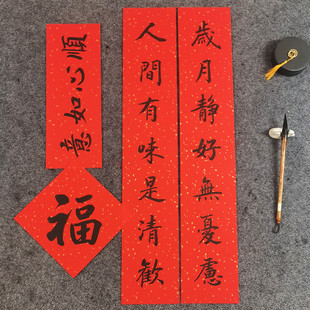 歲月静好無憂慮
人間有味是清歡
順心如意
福